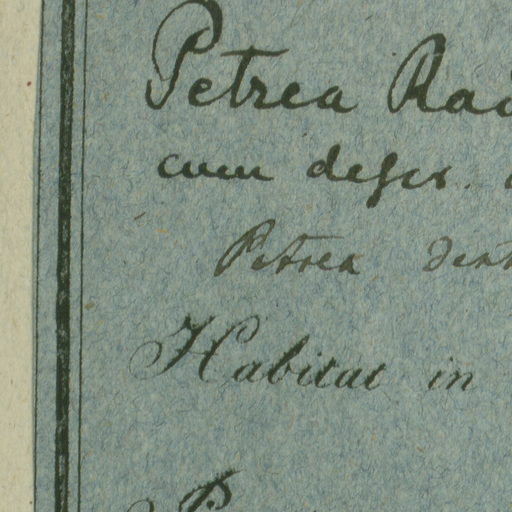 Petrea Rad
cum descr.
Petrea dent
Habitat in
P